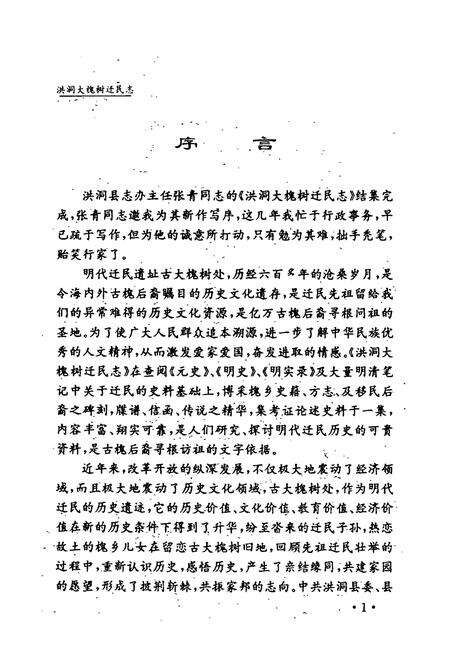 洪洞大槐树迁民志
序 言
洪洞县志办主任张青同志的《洪洞大槐树迁民志》结集完
成,张青同志邀我为其新作写序,这几年我忙于行政事务,早
已疏于写作,但为他的诚意所打动,只有勉为其难,拙手秃笔,
贻笑行家了。
明代迁民遗址古大槐树处,历经六百多年的沧桑岁月,是
今海内外古槐后裔瞩目的历史文化遗存,是迁民先祖留给我
们的异常难得的历史文化资源,是亿万古槐后裔寻根问祖的
圣地。为了使广大人民群众追本溯源,进一步了解中华民族优
秀的人文精神,从而激发爱家爱国,奋发进取的情感。《洪洞大
槐树迁民志》在查阅《元史》、《明史》、《明实录》及大量明清笔
记中关于迁民的史料基础上,博采槐乡史籍、方志、及移民后
裔之碑刻、牒谱、信函、传说之精华,集考证论述史料于一集,
内容丰富、翔实可靠,是人们研究、探讨明代迁民历史的可贵
资料,是古槐后裔寻根访祖的文字依据。
近年来,改革开放的纵深发展,不仅极大地震动了经济领
域,而且极大地震动了历史文化领域,古大槐树处,作为明代
迁民的历史遗迹,它的历史价值、文化价值、教育价值、经济价
值在新的历史条件下得到了升华,纷至沓来的迁民子孙,热恋
故土的槐乡儿女在留恋古大槐树旧地,回顾先祖迁民壮举的
过程中,重新认识历史,感悟历史,产生了亲结缘同,共建家园
的愿望,形成了披荆斩棘,共振家邦的志向。中共洪洞县委、县
·1·